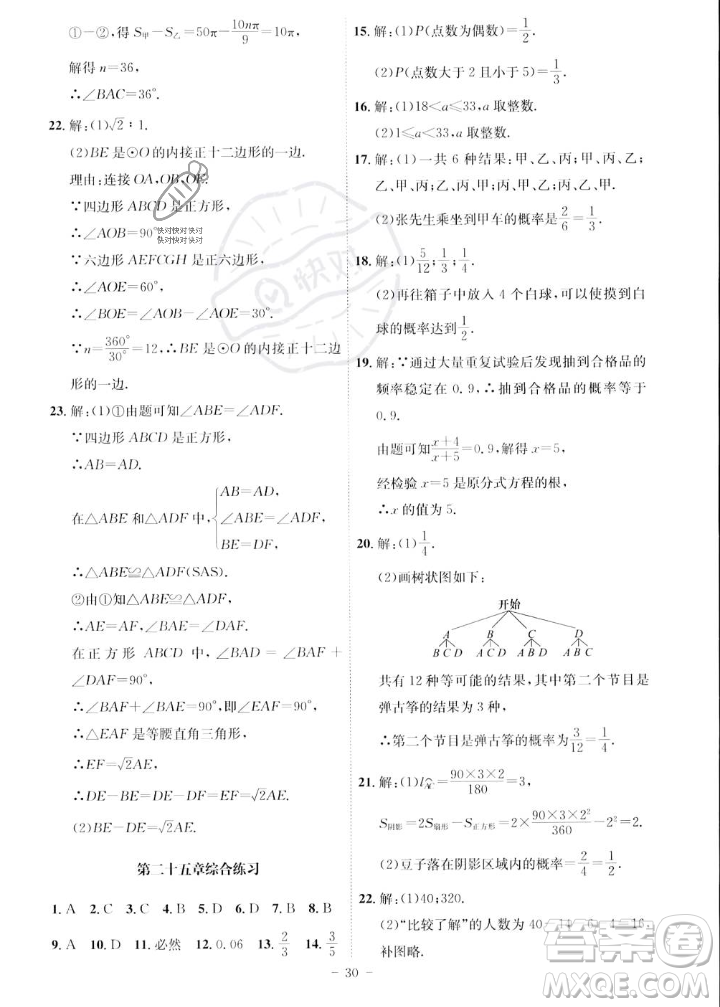 ①-②,得 S甲-S乙=50π-10nπ/9=10π,
解得 n=36,
∴∠BAC=36°.
22. 解:(1)√2∶1.
(2)BE 是⊙O 的内接正十二边形的一边.
理由:连接 OA,OB,OE.
∵四边形 ABCD 是正方形,
∴∠AOB=90°
∵六边形 AEFCGH 是正六边形,
∴∠AOE=60°,
∴∠BOE=30°.
∵n=360°/30°=12,∴BE 是⊙O 的内接正十二边
形的一边.
23. 解:(1)①由题可知∠ABE=∠ADF.
∵四边形 ABCD 是正方形,
∴AB=AD.
AB=AD,
在△ABE 和△ADF 中, ∠ABE=∠ADF,
BE=DF,
∴△ABE≌△ADF(SAS).
②由①知△ABE≌△ADF,
∴AE=AF,∠BAE=∠DAF.
在正方形 ABCD 中,∠BAD=∠BAF+
∠DAF=90°,
∴∠BAF+∠BAE=90°,即∠EAF=90°,
∴△EAF 是等腰直角三角形,
∴EF=√2AE,
∴DE-BE=DE-DF=EF=√2AE.
(2)BE-DE=√2AE.
第二十五章综合练习
1. A 2. C 3. C 4. C 5. D 6. B 7. B 8. B
9. A 10. D 11. 必然 12. 0.06 13. 2/3 14. 3/5
15. 解:(1)P(点数为偶数)=1/2.
(2)P(点数大于 2 且小于 5)=1/3.
16. 解:(1)18<a≤33,a 取整数.
(2)1≤a≤33,a 取整数.
17. 解:(1)一共 6 种结果:甲、乙、丙;甲、丙、乙;
乙、甲、丙;乙、丙、甲;丙、甲、乙;丙、乙、甲.
(2)张先生乘坐到甲车的概率=2/6=1/3.
18. 解:(1)5/12;1/3;1/4.
(2)再往箱子中放入 4 个白球,可以使摸到白
球的概率达到1/2.
19. 解:∵通过大量重复试验后发现抽到合格品的
频率稳定在 0.9,∴抽到合格品的概率等于
0.9.
由题可知(x+4)/(x+5)=0.9,解得 x=5,
经检验 x=5 是原分式方程的根,
∴x 的值为 5.
20. 解:(1)1/4.
(2)画树状图如下:
开始
A B C D
B C D A C D A B D A B C
共有 12 种等可能的结果,其中第二个节目是
弹古筝的结果为 3 种,
∴第二个节目是弹古筝的概率为3/12=1/4.
21. 解:(1)l=90×3×2/180=3,
S阴影=2S扇形-S正方形=2×90×3×2²/360-2²=2.
(2)豆子落在阴影区域内的概率=2/4=1/2.
22. 解:(1)40;320.
(2)"比较了解"的人数为 40-14-6-4=16.
补图略.
- 30 -
快对
快对快对快对
快对快对快对
答案圈